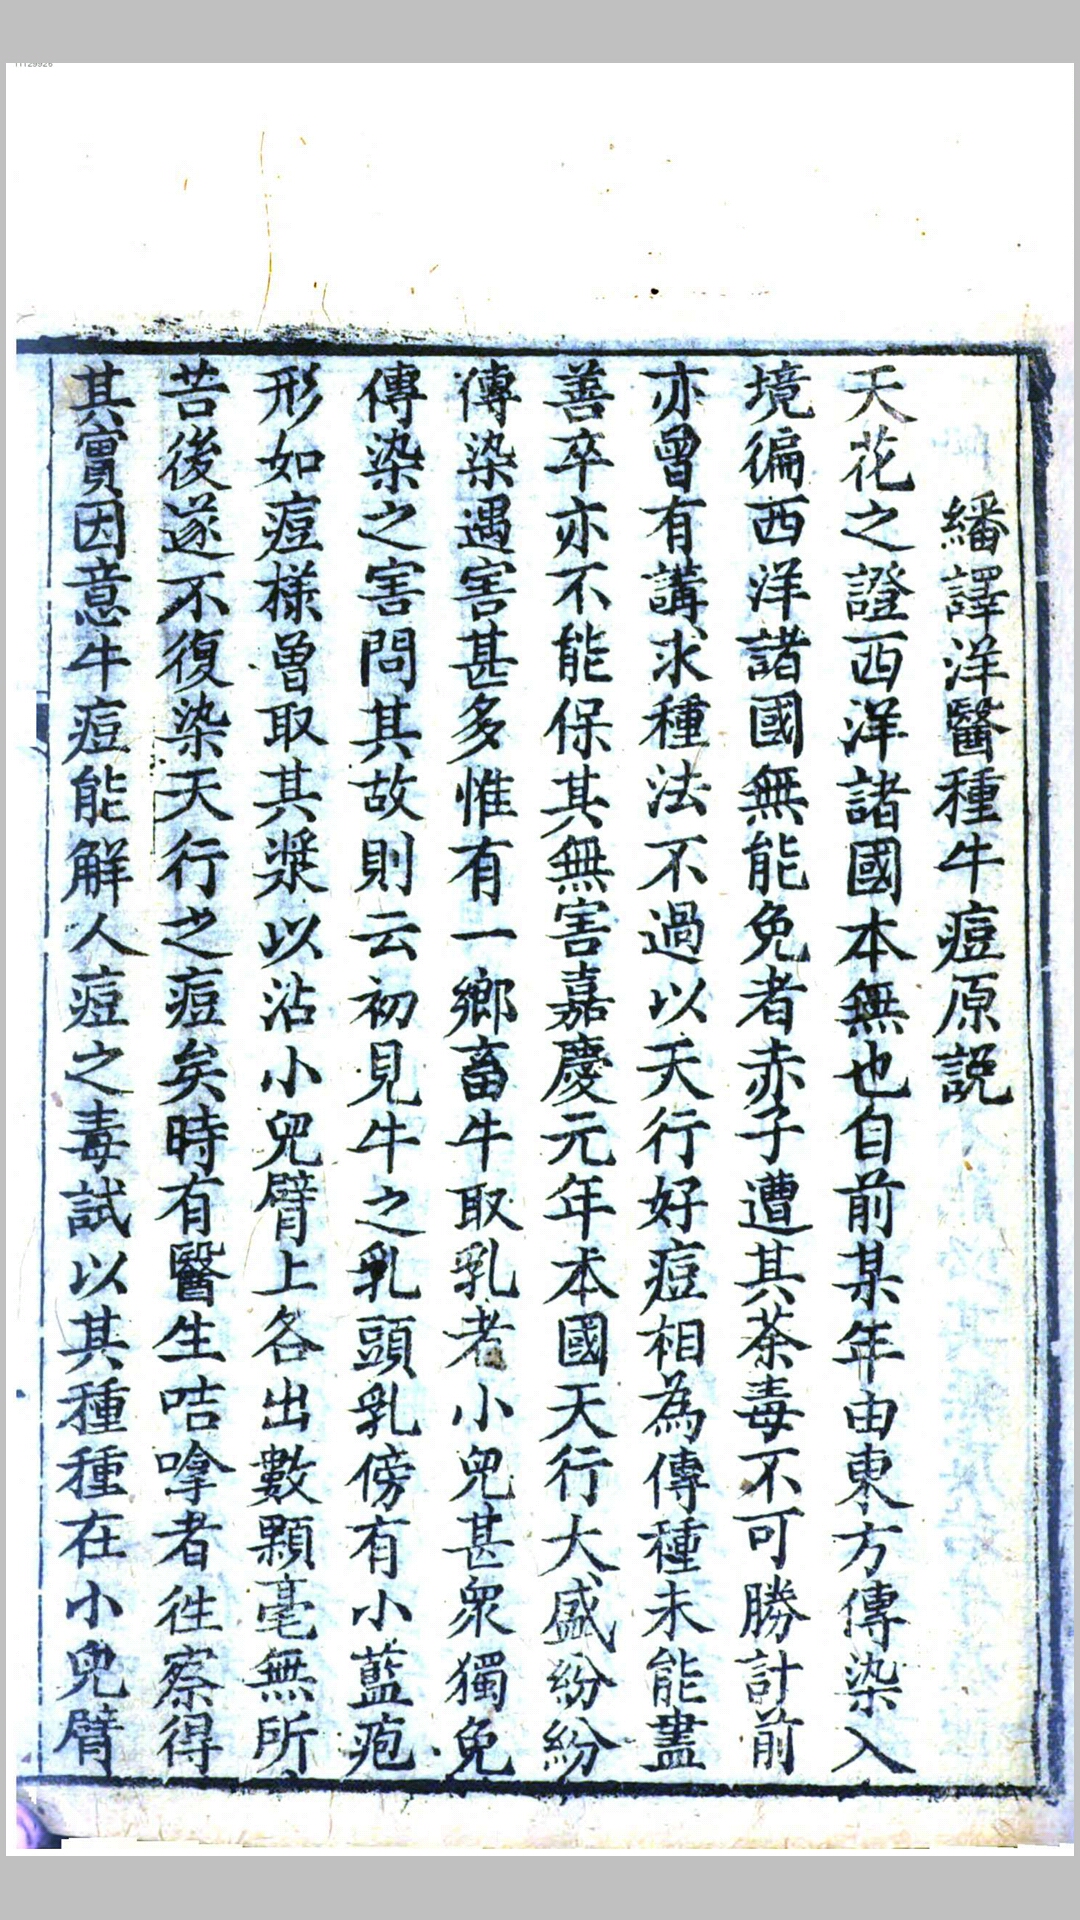 11129926
繙譯洋醫種牛痘原説
天花之證西洋諸國本無也自前某年由東方傳染入
境徧西洋諸國無能免者赤子遭其荼毒不可勝計前
亦曾有講求種法不過以天行好痘相為傳種未能盡
善卒亦不能保其無害嘉慶元年本國天行大盛紛紛
傳染遇害甚多惟有一鄉畜牛取乳者小兒甚衆獨免
傳染之害問其故則云初見牛之乳頭乳傍有小藍疱
形如痘樣曾取其漿以沾小兒臂上各出數顆毫無所
苦後遂不復染天行之痘矣時有醫生咭嗱者徃察得
其實因意牛痘能解人痘之毒試以其種種在小兒臂